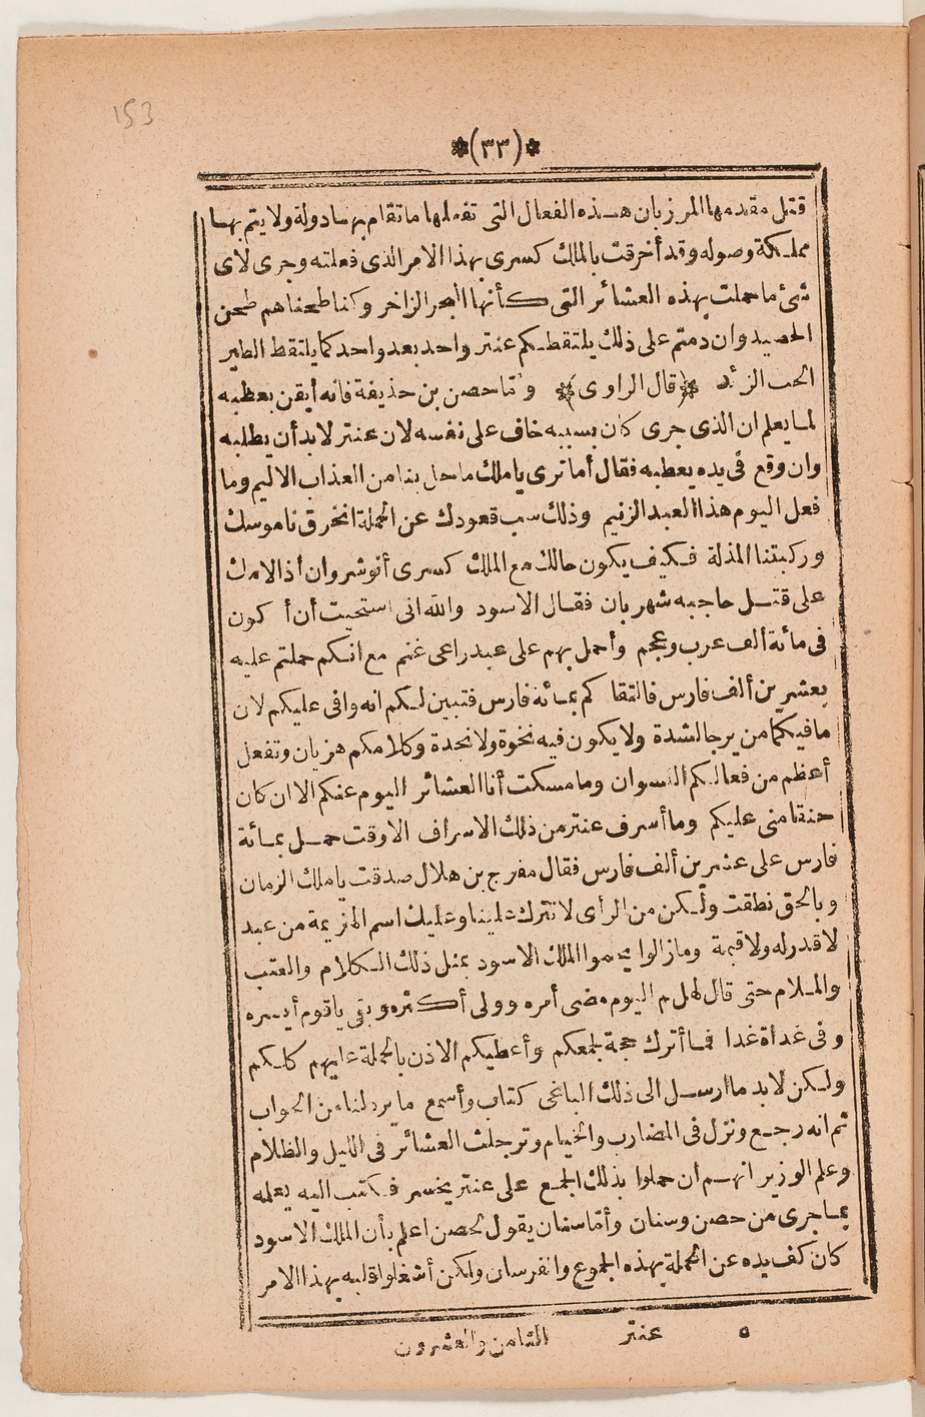 153
*(٣٣)*
قتل مقدمها المرزبان هـذه الفعال التى تفعلها ما تقام بها دولة ولا يتم بها
مملكة وصوله وقد أخرقت بالملك كسرى بهذا الامر الذى فعلته وجرى لاى
شئ ما حملت بهذه العشائر التى كأنها البحر الزاخر وكنا طحناهم طحن
الحصيد وان دمتم على ذلك يلتقطكم عنتر واحد بعد واحد كما يلتقط الطير
الحب (قال الراوى) وأما حصن بن حذيفة فانه أيقن بعطبه
لما يعلم ان الذى جرى كان بسببه خاف على نفسه لان عنتر لابد أن يطلبه
وان وقع فى يده يعطبه فقال أما ترى يا ملك ما حل بنا من العذاب الاليم وما
فعل اليوم هذا العبد الزنيم وذلك سبب قعودك عن الحملة انخرق ناموسك
وركبتنا المذلة فكيف يكون حالك مع الملك كسرى أنوشروان اذا لامك
على قتل حاجبه شهربان فقال الاسود والله انى استحيت أن أكون
فى مائة ألف عرب وعجم وأحمل بهم على عبد راعى غنم مع انكم حملتم عليه
بعشرين ألف فارس فالتقاكم بمائة فارس فتبين لكم انه وافى عليكم لان
ما فيكم من يرجا لشدة ولا يكون فيه نخوة ولا نجدة وكلامكم هزيان وتفعل
أعظم من فعالكم النسوان وما مسكت أنا العشائر اليوم عنكم الا ان كان
حنقا منى عليكم وما أسرف عنتر من ذلك الاسراف الا وقت حمل بمائة
فارس على عشرين ألف فارس فقال مفرج بن هلال صدقت يا ملك الزمان
وبالحق نطقت ولكن من الرأى لا تترك علينا وعليك اسم الهزيمة من عبد
لا قدر له ولا قيمة وما زالوا الملك الاسود بمثل ذلك الكلام والعتب
والملام حتى قال لهم اليوم مضى أمره وولى أكثره وبقى يا قوم أيسره
وفى غداة غدا فما أترك حجة لجمعكم وأعطيكم الاذن بالحملة عليهم كلكم
ولكن لابد ما ارسل الى ذلك الباغى كتاب وأسمع ما يرد لنا من الجواب
ثم انه رجع ونزل فى المضارب والخيام وترجلت العشائر فى الليل والظلام
وعلم الوزير انهم ان حملوا بذلك الجمع على عنتر يخسر فكتب اليه يعلمه
بما جرى من حصن وسنان وأما سنان يقول لحصن اعلم بأن الملك الاسود
كان كف يده عن الحملة بهذه الجموع والفرسان ولكن أشغلوا قلبه بهذا الامر
٥ عنتر الثامن والعشرون